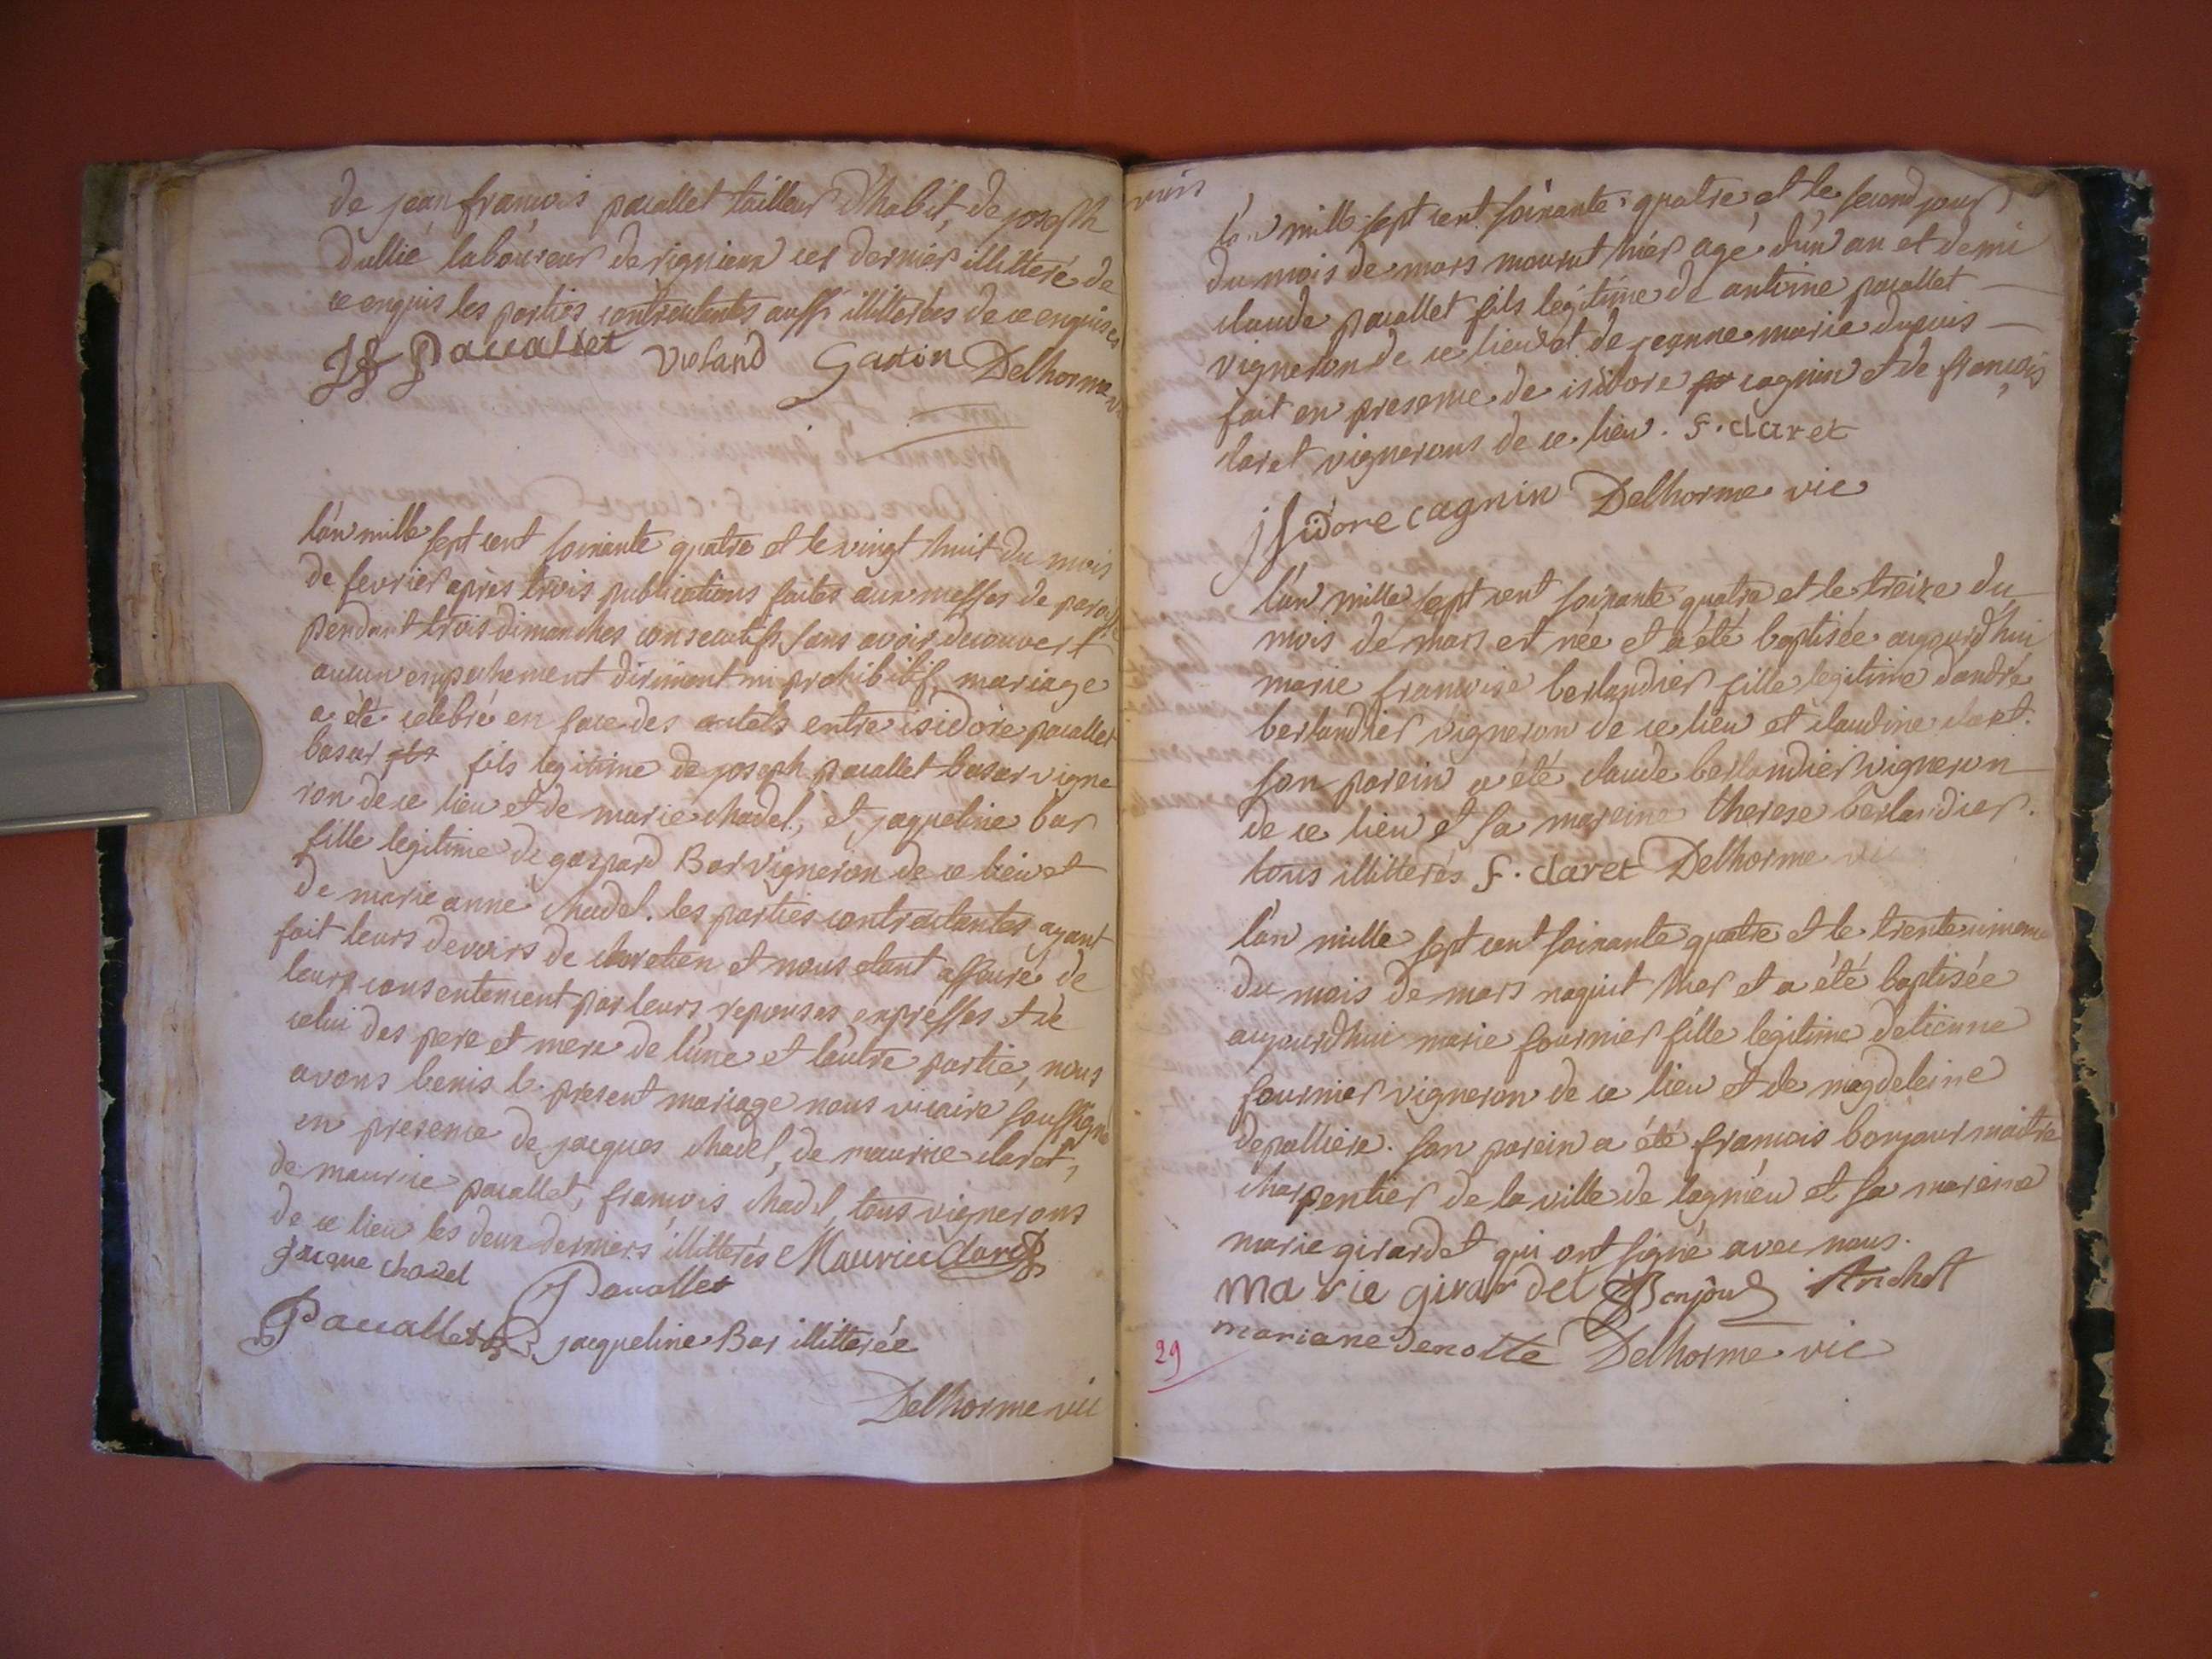 de jean françois pacallet tailleur d'habit, de joseph
dullié laboureur de rignieux ces dernier illitteré de
ce enquis les parties contractantes aussi illitterées de ce enquises
Pacallet Gaxion Delhorme

l'an mille sept cent soixante quatre et le vingt huit du mois
de fevrier après trois publications faites aux messes de paroisse
pendant trois dimanches consecutifs sans avoir decouvert
aucun empechement diriment ni prohibitif, mariage
a été celebré en face des autels entre isidore pacallet
basar fils legitime de joseph pacallet basar vigne
ron de ce lieu et de marie chadel, et jaqueline bar
fille legitime de gaspard Bar vigneron de ce lieu et
de marie anne chadel. les parties contractantes ayant
fait leurs devoirs de chretien et nous etant assuré de
leurs consentement par leurs reponses expresses et de
celui des pere et mere de l'une et l'autre partie, nous
avons benis le present mariage nous vicaire soussigné
en presence de jacques chadel, de maurice claret,
de maurice pacallet, françois chadel, tous vignerons
de ce lieu les deux derniers illitterés Maurice Claret
jacque chadel Pacallet
Pacallet jacqueline Bar illitterée
Delhorme vic

l'an mille sept cent soixante quatre et le second jour
du mois de mars mourut hier agé d'un an et demi
claude pacallet fils legitime de antoine pacallet
vigneron de ce lieu et de jeanne marie dupuis
fait en presence de isidore cagnin et de françois
claret vignerons de ce lieu. f. claret
jsidore cagnin Delhorme vic

l'an mille sept cent soixante quatre et le treize du
mois de mars est née et a été baptisée aujourd'hui
marie françoise berlandier fille legitime d'andré
berlandier vigneron de ce lieu et claudine claret.
son parein a été claude berlandier vigneron
de ce lieu et sa mareine therese berlandier.
tous illitterés f. claret Delhorme vic

l'an mille sept cent soixante quatre et le trente unieme
du mois de mars naquit hier et a été baptisée
aujourd'hui marie fournier fille legitime d'etienne
fournier vigneron de ce lieu et de magdeleine
depalliere. son parein a été françois bonjour maitre
charpentier de la ville de lagnieu et sa mareine
marie girardet qui ont signé avec nous.
marie girardet Bonjour Anchet
mariane denotte Delhorme vic
29